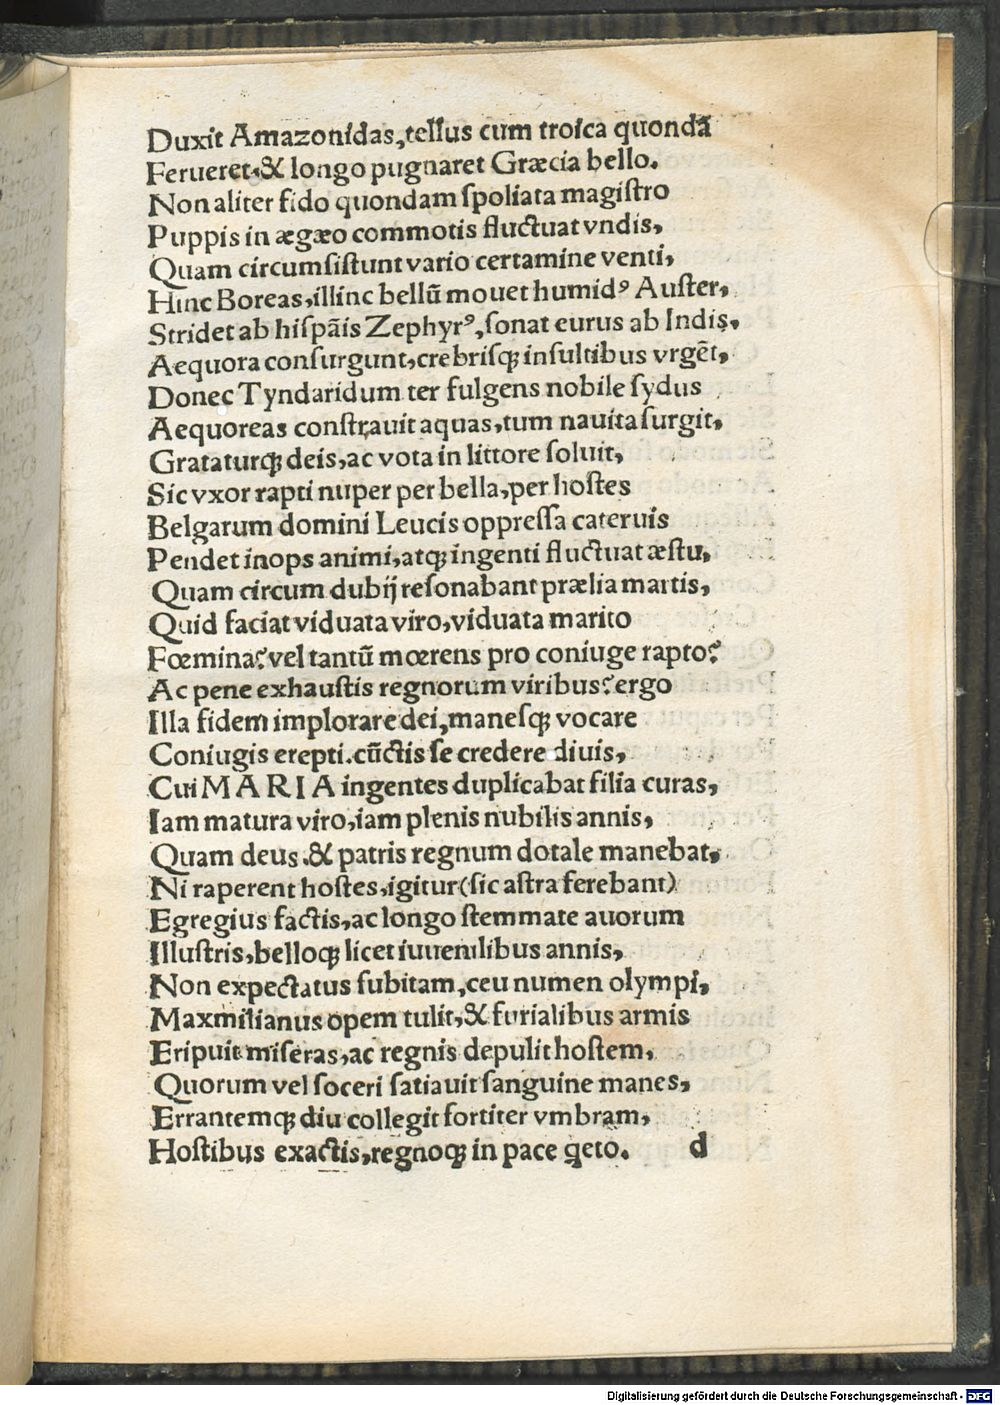 Duxit Amazonidas,tellus cum troica quondã
Ferueret,& longo pugnaret Græcia bello.
Non aliter fido quondam ſpoliata magiſtro
Puppis in ægæo commotis fluctuat vndis,
Quam circumſiſtunt vario certamine venti,
Hinc Boreas,illinc bellũ mouet humidꝰ Auſter,
Stridet ab hiſpãis Zephyrꝰ,ſonat eurus ab Indis,
Aequora conſurgunt,crebriſqꝫ inſultibus vrgẽt,
Donec Tyndaridum ter fulgens nobile ſydus
Aequoreas conſtrauit aquas,tum nauita ſurgit,
Grataturqꝫ deis,ac vota in littore ſoluit,
Sic vxor rapti nuper per bella,per hoſtes
Belgarum domini Leucis oppreſſa cateruis
Pendet inops animi,atqꝫ ingenti fluctuat æſtu,
Quam circum dubij reſonabant prælia martis,
Quid faciat viduata viro,viduata marito
Fœmina? vel tantũ mœrens pro coniuge rapto?
Ac pene exhauſtis regnorum viribus? ergo
Illa fidem implorare dei,maneſqꝫ vocare
Coniugis erepti.cũctis ſe credere diuis,
Cui MARIA ingentes duplicabat filia curas,
Iam matura viro,iam plenis nubilis annis,
Quam deus.& patris regnum dotale manebat,
Ni raperent hoſtes,igitur(ſic aſtra ferebant)
Egregius factis,ac longo ſtemmate auorum
Illuſtris,belloqꝫ licet iuuenilibus annis,
Non expectatus ſubitam,ceu numen olympi,
Maxmilianus opem tulit,& furialibus armis
Eripuit miſeras,ac regnis depulit hoſtem,
Quorum vel ſoceri ſatiauit ſanguine manes,
Errantemqꝫ diu collegit fortiter vmbram,
Hoſtibus exactis,regnoqꝫ in pace q̃eto. d
Digitalisierung gefördert durch die Deutsche Forschungsgemeinschaft - DFG